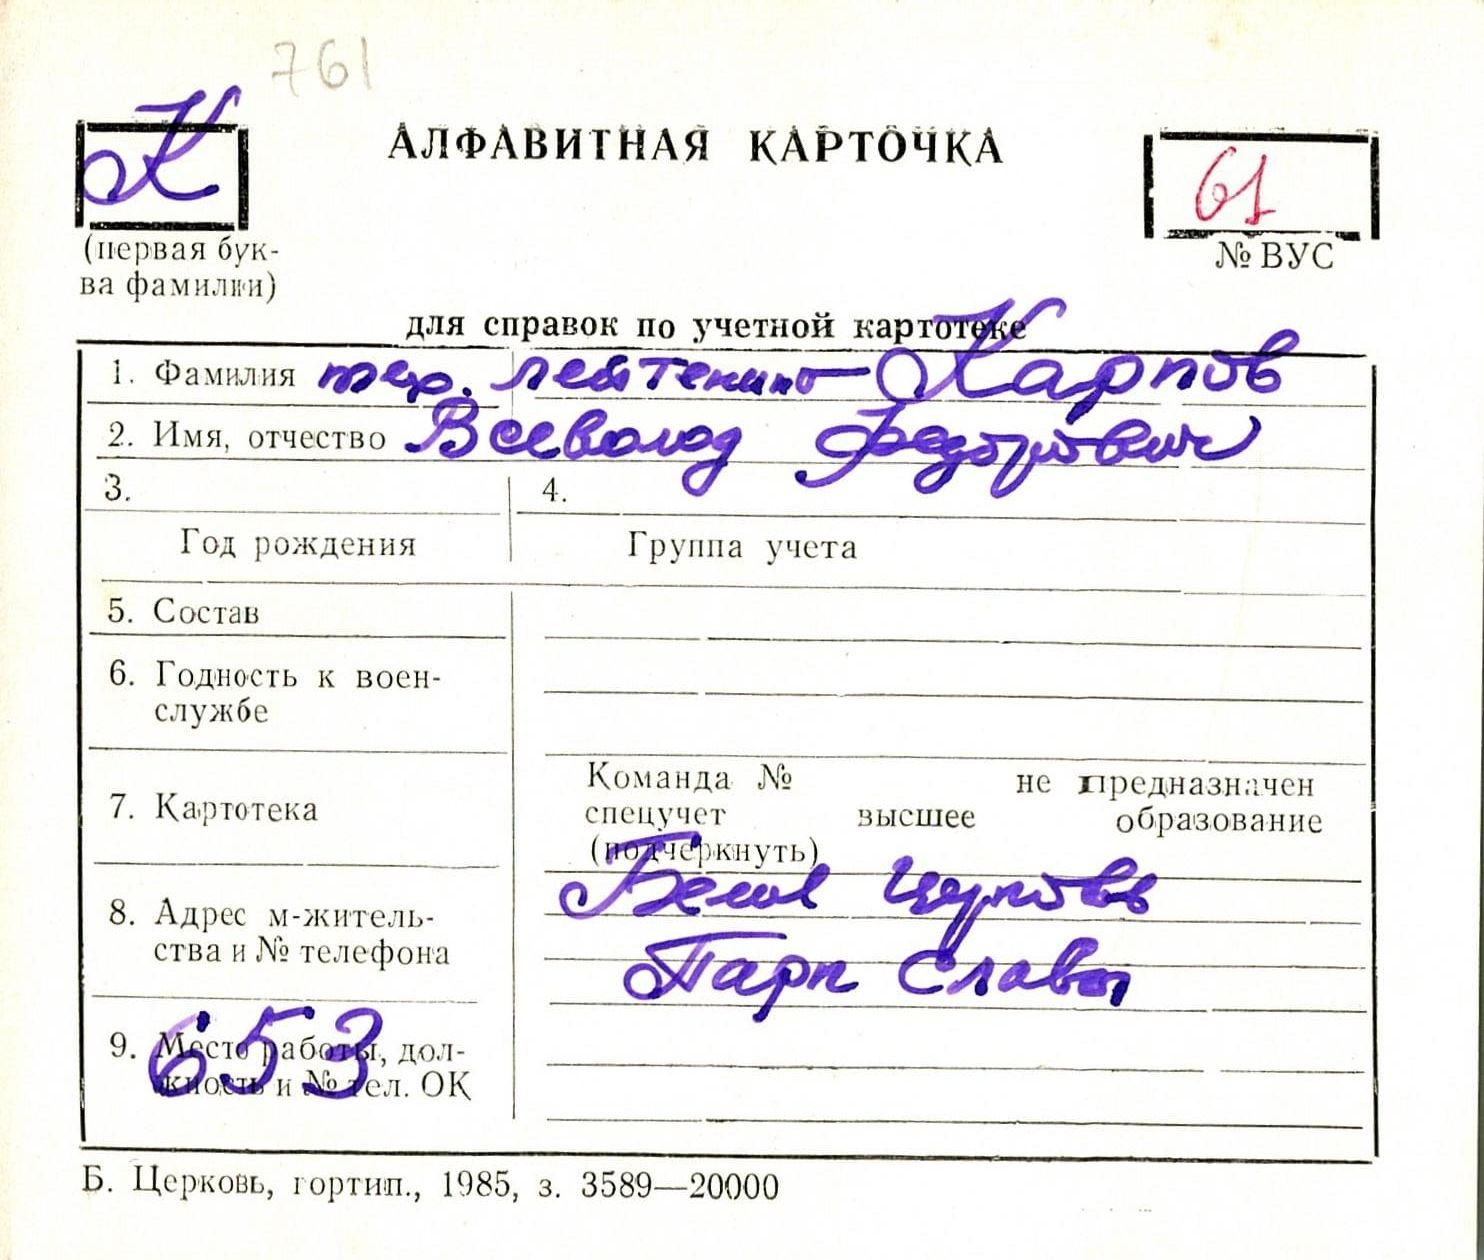 761
К
АЛФАВИТНАЯ КАРТОЧКА
61
(первая бук-
ва фамилии)
№ ВУС
для справок по учетной картотеке
1. Фамилия тех. лейтенант Карпов
2. Имя, отчество Всеволод Федорович
3.
4.
Год рождения
Группа учета
5. Состав
6. Годность к воен-
службе
7. Картотека
Команда № не предназначен
спецучет высшее образование
(подчеркнуть)
8. Адрес м-житель-
ства и № телефона
Белая Церковь
Парк Славы
9. Место работы, дол-
жность и № тел. ОК
653
Б. Церковь, гортип., 1985, з. 3589—20000